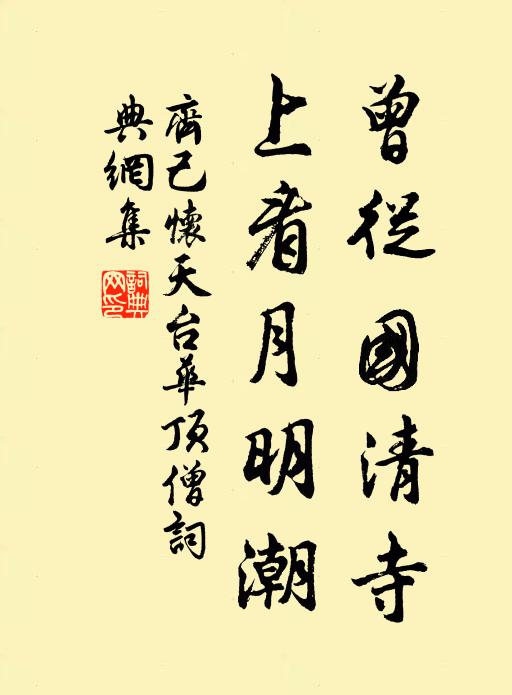 曾從國清寺
上看月明潮
齊己懷天台華頂僧詞
典網集
詞典網印